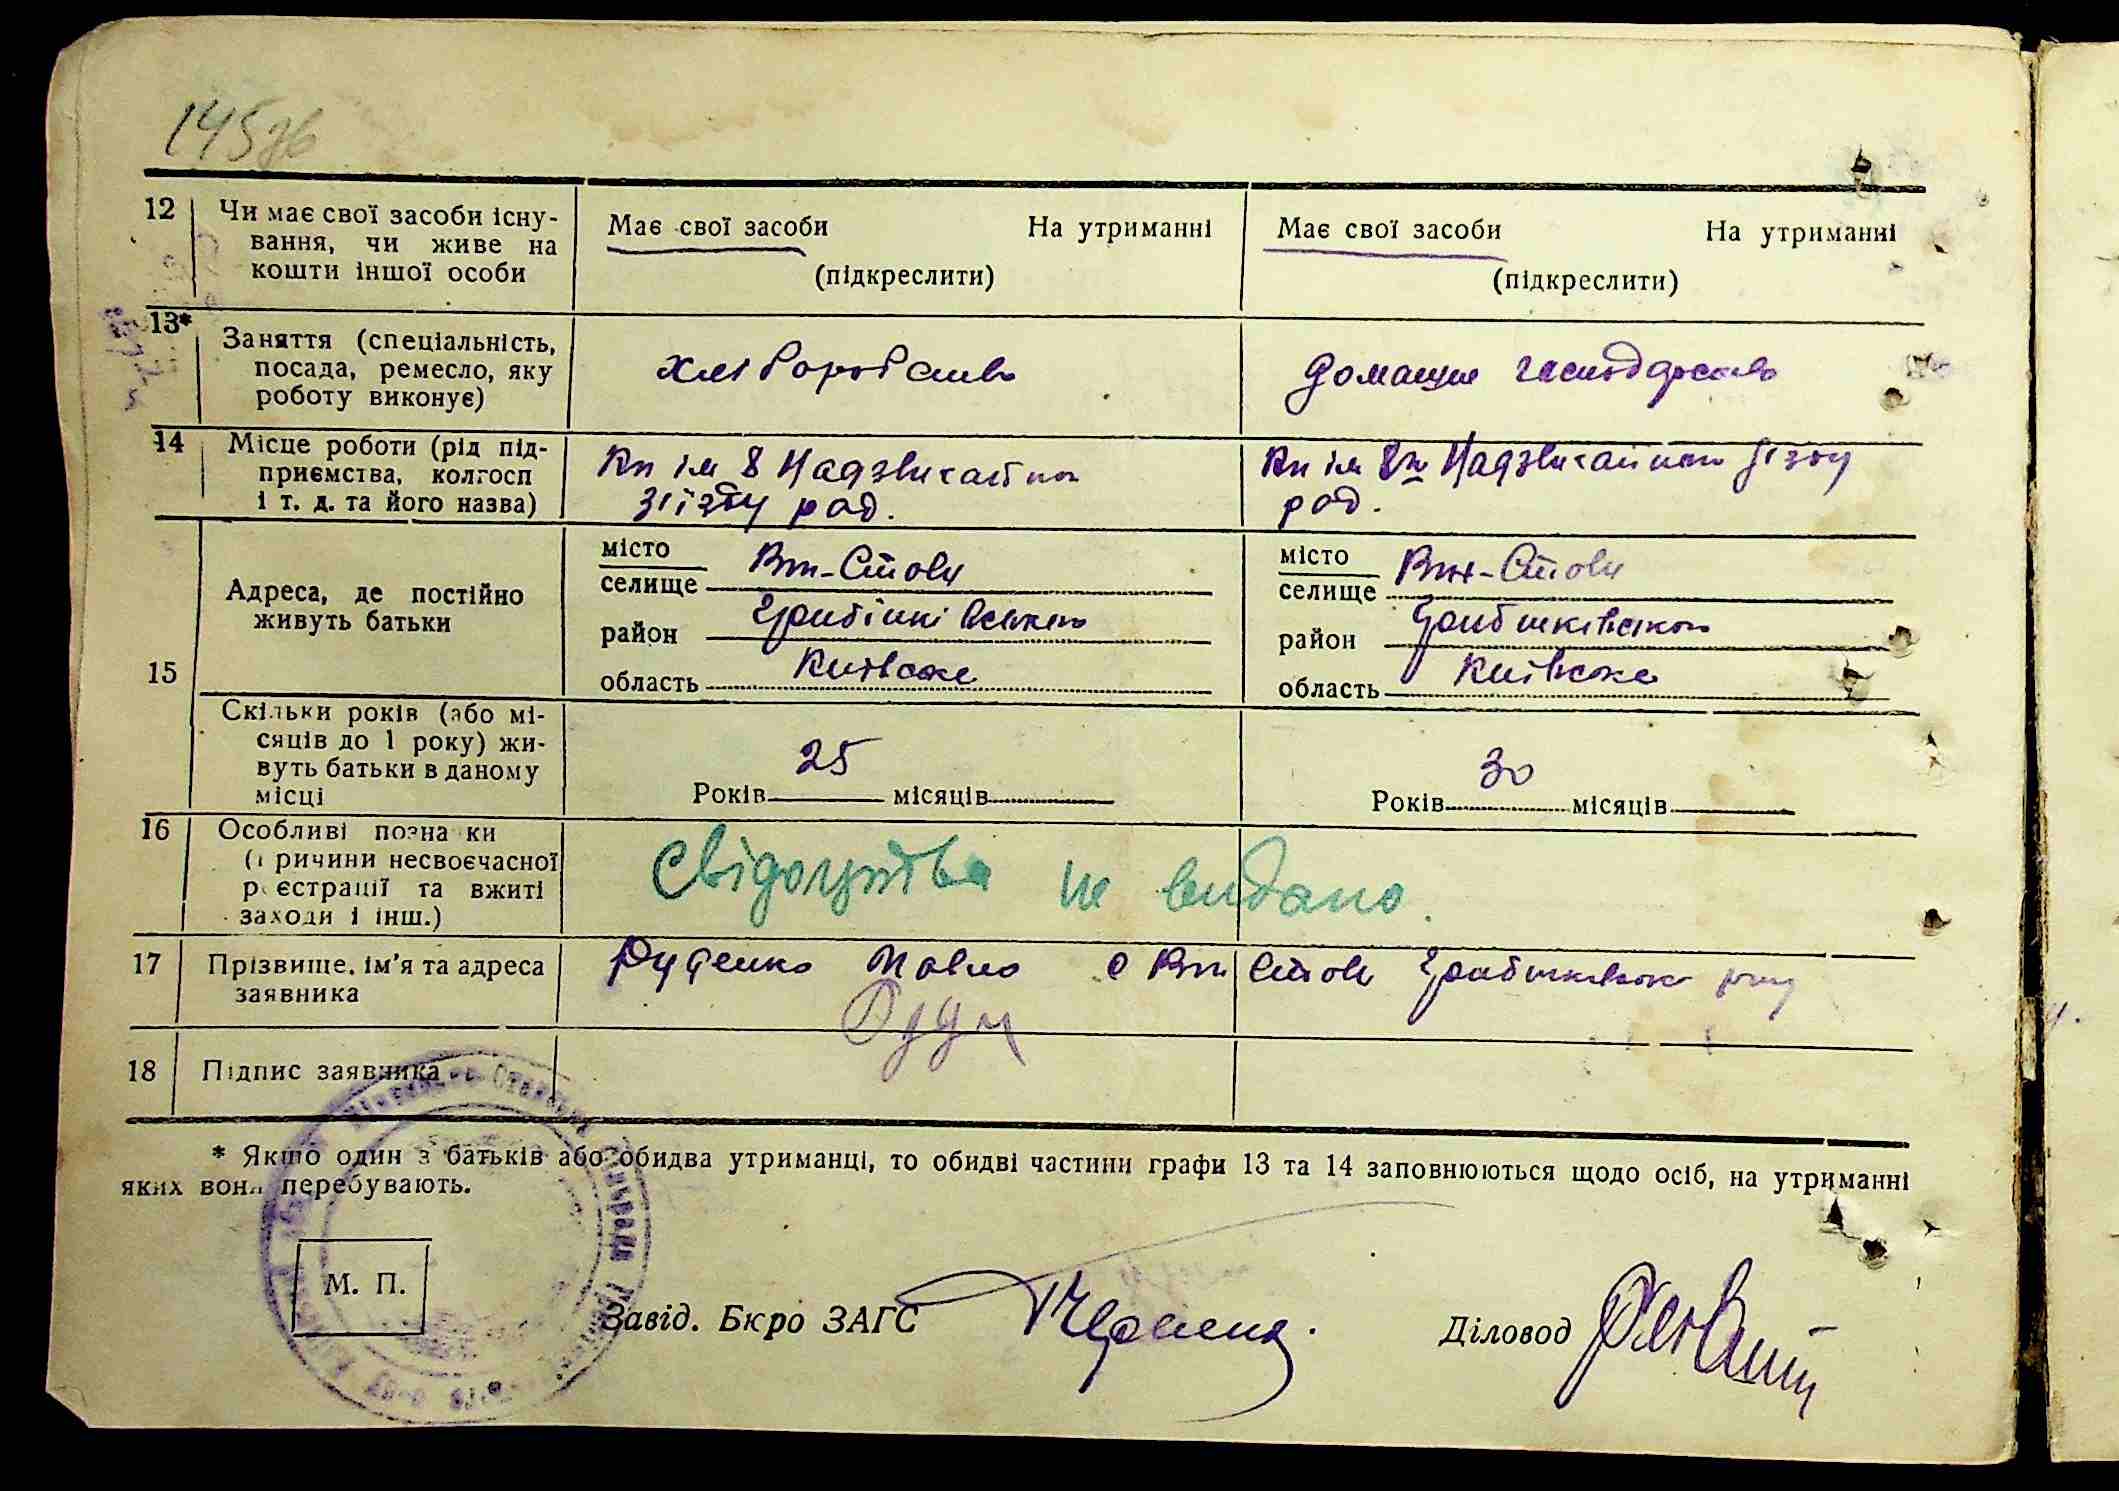 145зв
12 Чи має свої засоби існу-
вання, чи живе на
кошти іншої особи
Має свої засоби На утриманні
(підкреслити)
Має свої засоби На утриманні
(підкреслити)
13* Заняття (спеціальність,
посада, ремесло, яку
роботу виконує)
хліборобство
домашнє господарство
14 Місце роботи (рід під-
приємства, колгосп
і т. д. та його назва)
Кп ім 8 Надзвичайного
зїізду рад.
Кп ім 8го Надзвичайного зїзду
рад.
15 Адреса, де постійно
живуть батьки
місто
селище Вт-Стави
район Гребінківського
область Київське
місто
селище Вт-Стави
район Гребінківського
область Київське
Скільки років (або мі-
сяців до 1 року) жи-
вуть батьки в даному
місці
25
Років місяців
30
Років місяців
16 Особливі позначки
(причини несвоєчасної
реєстрації та вжиті
заходи і інш.)
Свідоцтва не видано.
17 Прізвище, ім'я та адреса
заявника
Руденко Павло с Вт Стави Гребінківського р-ну
18 Підпис заявника
* Якщо один з батьків або обидва утриманці, то обидві частини графи 13 та 14 заповнюються щодо осіб, на утриманні
яких вони перебувають.
М. П.
Завід. Бюро ЗАГС
Діловод